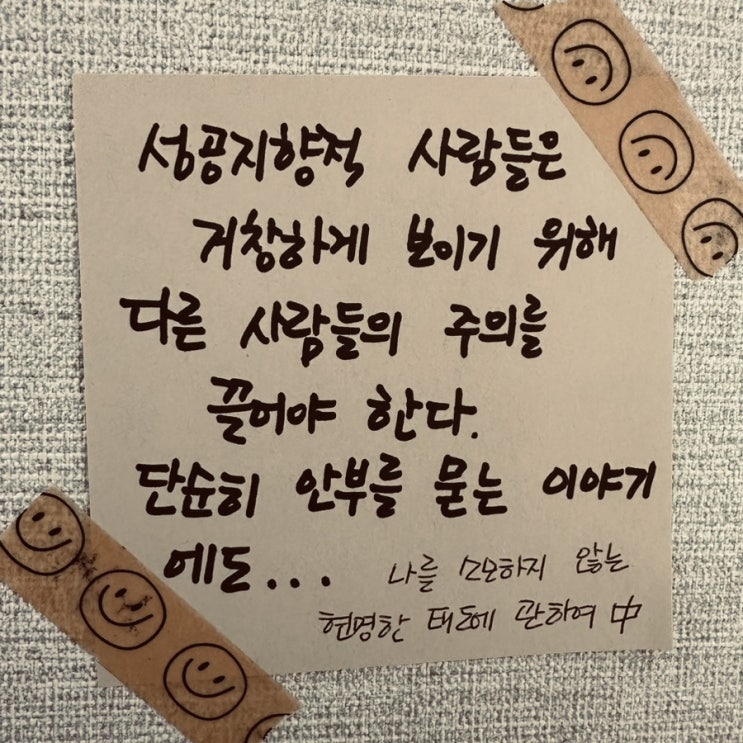 성공지향적 사람들은
거창하게 보이기 위해
다른 사람들의 주의를
끌어야 한다.
단순히 안부를 묻는 이야기
에도...
나를 소모하지 않는
현명한 태도에 관하여 中